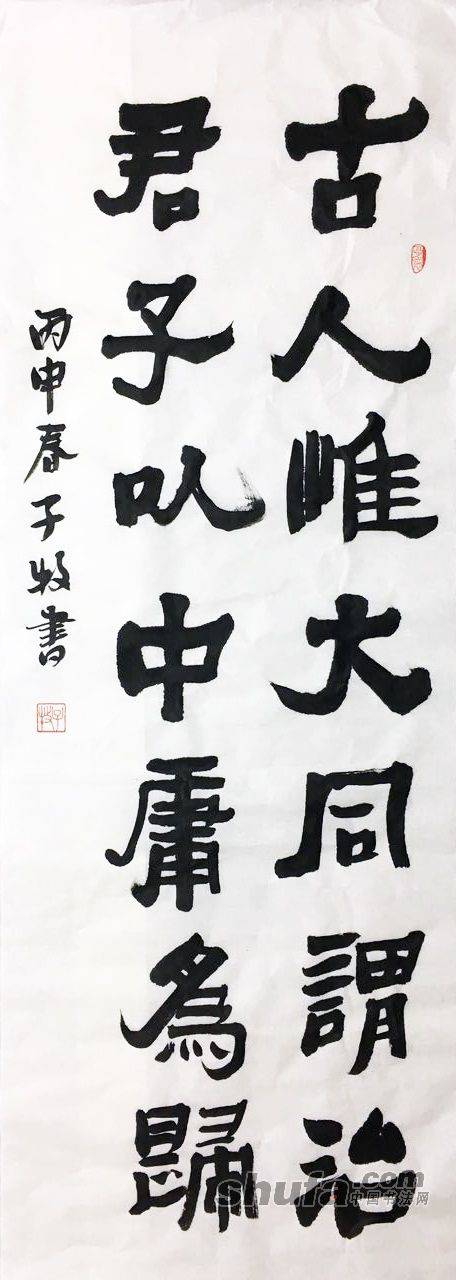 古人惟大同謂治
君子以中庸為歸
丙申春子牧書
shufa.com
中国书法网